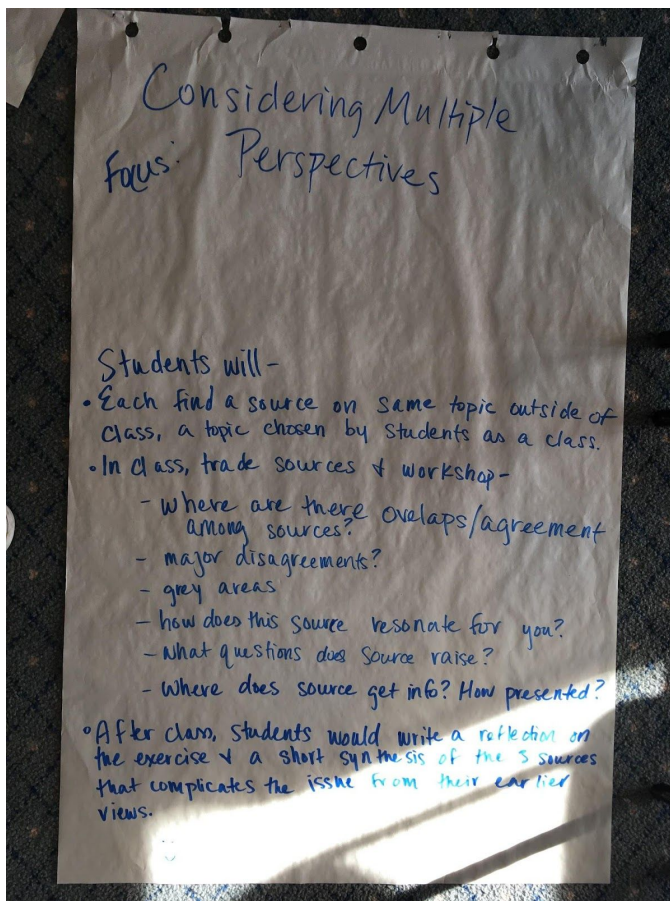 Considering Multiple
Focus: Perspectives
Students will-
• Each find a source on same topic outside of
class, a topic chosen by students as a class.
• In class, trade sources & workshop-
- where are there ovelaps/agreement
among sources?
- major disagreements?
- grey areas
- how does this source resonate for you?
- What questions does source raise?
- Where does source get info? How presented?
• After class, students would write a reflection on
the exercise & a short synthesis of the 3 sources
that complicates the issue from their earlier
views.